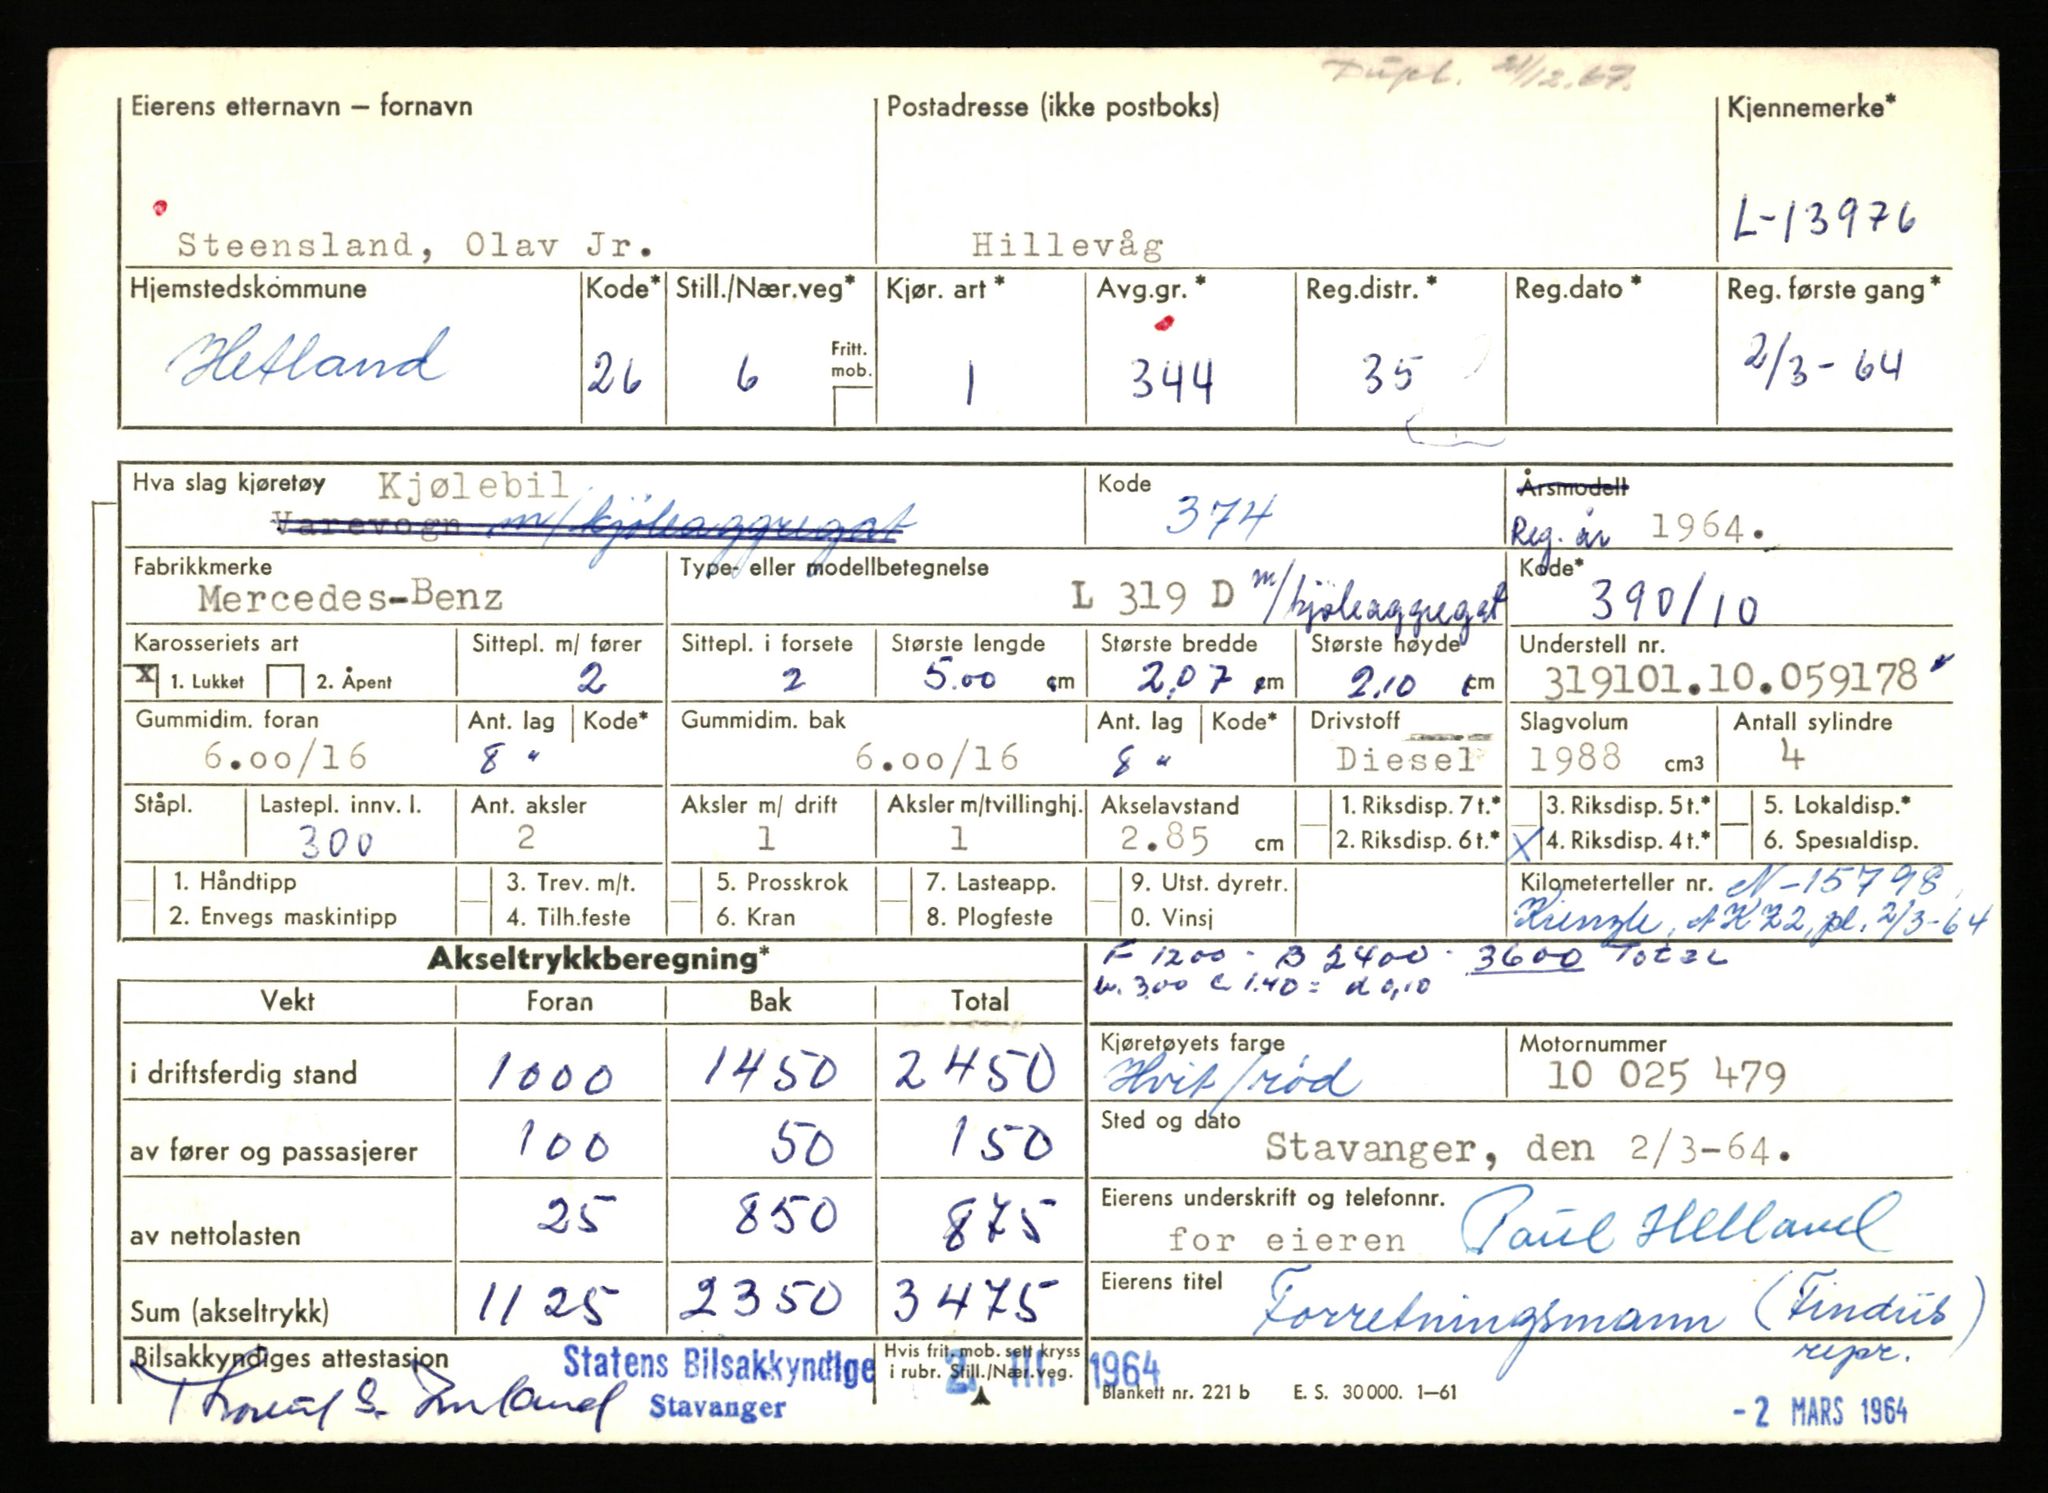 Dupl. 21/12.67.
Eierens etternavn – fornavn
Postadresse (ikke postboks)
Kjennemerke*
Steensland, Olav Jr.
Hillevåg
L-13976
Hjemstedskommune
Kode*
Still./Nær.veg*
Kjør. art*
Avg.gr.*
Reg.distr.*
Reg.dato*
Reg. første gang*
Hetland
26
6
Fritt. mob.
1
344
35
2/3-64
Hva slag kjøretøy
Kjølebil
Varevogn m/kjøleaggregat
Kode
374
Årsmodell
Reg. år 1964.
Fabrikkmerke
Mercedes-Benz
Type- eller modellbetegnelse
L 319 D m/kjøleaggregat
Kode*
390/10
Karosseriets art
x 1. Lukket 2. Åpent
Sittepl. m/ fører
2
Sittepl. i forsete
2
Største lengde
5.00 cm
Største bredde
2,07 cm
Største høyde
2.10 cm
Understell nr.
319101.10.059178
Gummidim. foran
6.00/16
Ant. lag
8 "
Kode*
Gummidim. bak
6.00/16
Ant. lag
8 "
Kode*
Drivstoff
Diesel
Slagvolum
1988 cm3
Antall sylindre
4
Ståpl.
Lastepl. innv. l.
300
Ant. aksler
2
Aksler m/ drift
1
Aksler m/tvillinghj.
1
Akselavstand
2.85 cm
1. Riksdisp. 7 t.*
2. Riksdisp. 6 t.*
3. Riksdisp. 5 t.*
X 4. Riksdisp. 4 t.*
5. Lokaldisp.*
6. Spesialdisp.
1. Håndtipp
2. Envegs maskintipp
3. Trev. m/t.
4. Tilh.feste
5. Prosskrok
6. Kran
7. Lasteapp.
8. Plogfeste
9. Utst. dyretr.
0. Vinsj
Kilometerteller nr. N-15798,
Kienzle, AKZ2, pl. 2/3-64
Akseltrykkberegning*
F 1200 - B 2400 - 3600 Total
b. 3.00 c 1.40 = d 0,10
Vekt Foran Bak Total
i driftsferdig stand 1000 1450 2450
av fører og passasjerer 100 50 150
av nettolasten 25 850 875
Sum (akseltrykk) 1125 2350 3475
Kjøretøyets farge
Hvit/rød
Motornummer
10 025 479
Sted og dato
Stavanger, den 2/3-64.
Eierens underskrift og telefonnr.
for eieren Paul Helland
Eierens titel
Forretningsmann (Findus)
repr.
Bilsakkyndiges attestasjon
Statens Bilsakkyndige
Stavanger
Hvis frit. mob. sett kryss
i rubr. Still./Nær.veg.
2. III 1964
Blankett nr. 221 b E. S. 30 000. 1–61
-2 MARS 1964